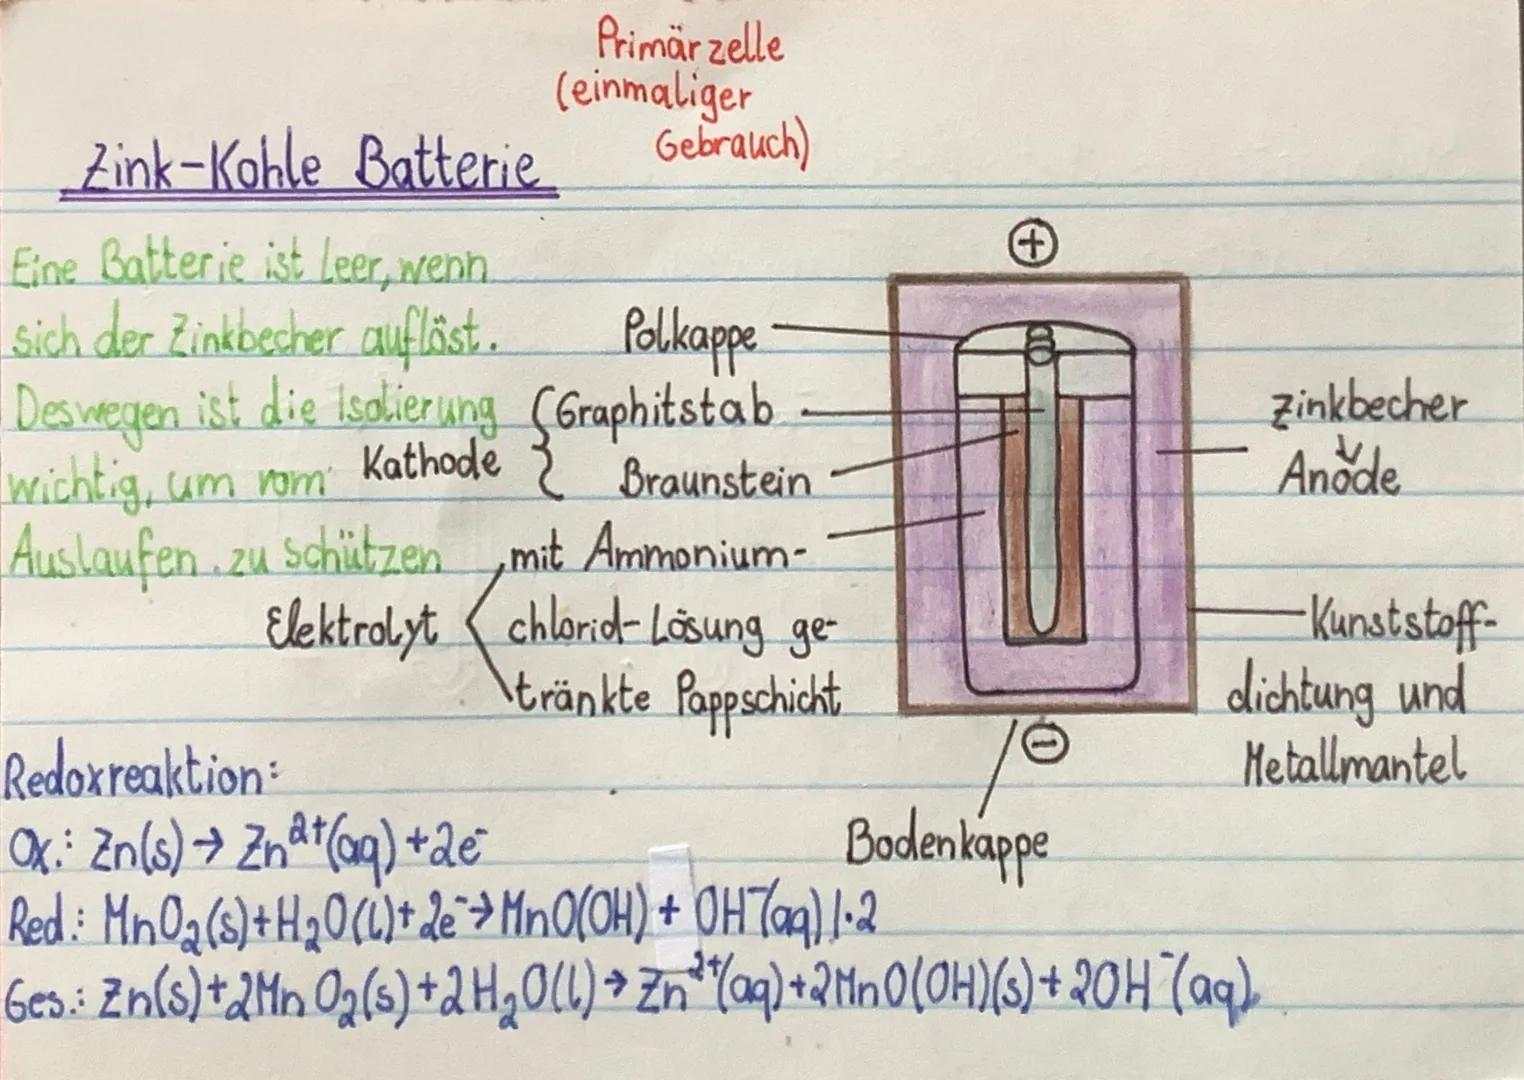 Primärzelle
(einmaliger
Gebrauch)
Zink-Kohle Batterie
Eine Batterie ist leer, wenn
sich der Zinkbecher auflöst.
Deswegen ist die Isolierung
wichtig, um vom
Auslaufen zu schützen
+
Polkappe
Kathode { Graphitstab
Braunstein
Elektrolyt
mit Ammonium-
chlorid-Lösung ge-
tränkte Pappschicht
Zinkbecher
Anode
Kunststoff-
dichtung und
Metallmantel
-
Bodenkappe
Redoxreaktion:
Ox.: Zn(s) → Zn²⁺(aq) + 2e⁻
Red.: MnO₂(s) + H₂O(l) + 2e⁻ → MnO(OH) + OH⁻(aq) | · 2
Ges.: Zn(s) + 2MnO₂(s) + 2H₂O(l) → Zn²⁺(aq) + 2MnO(OH)(s) + 2OH⁻(aq)